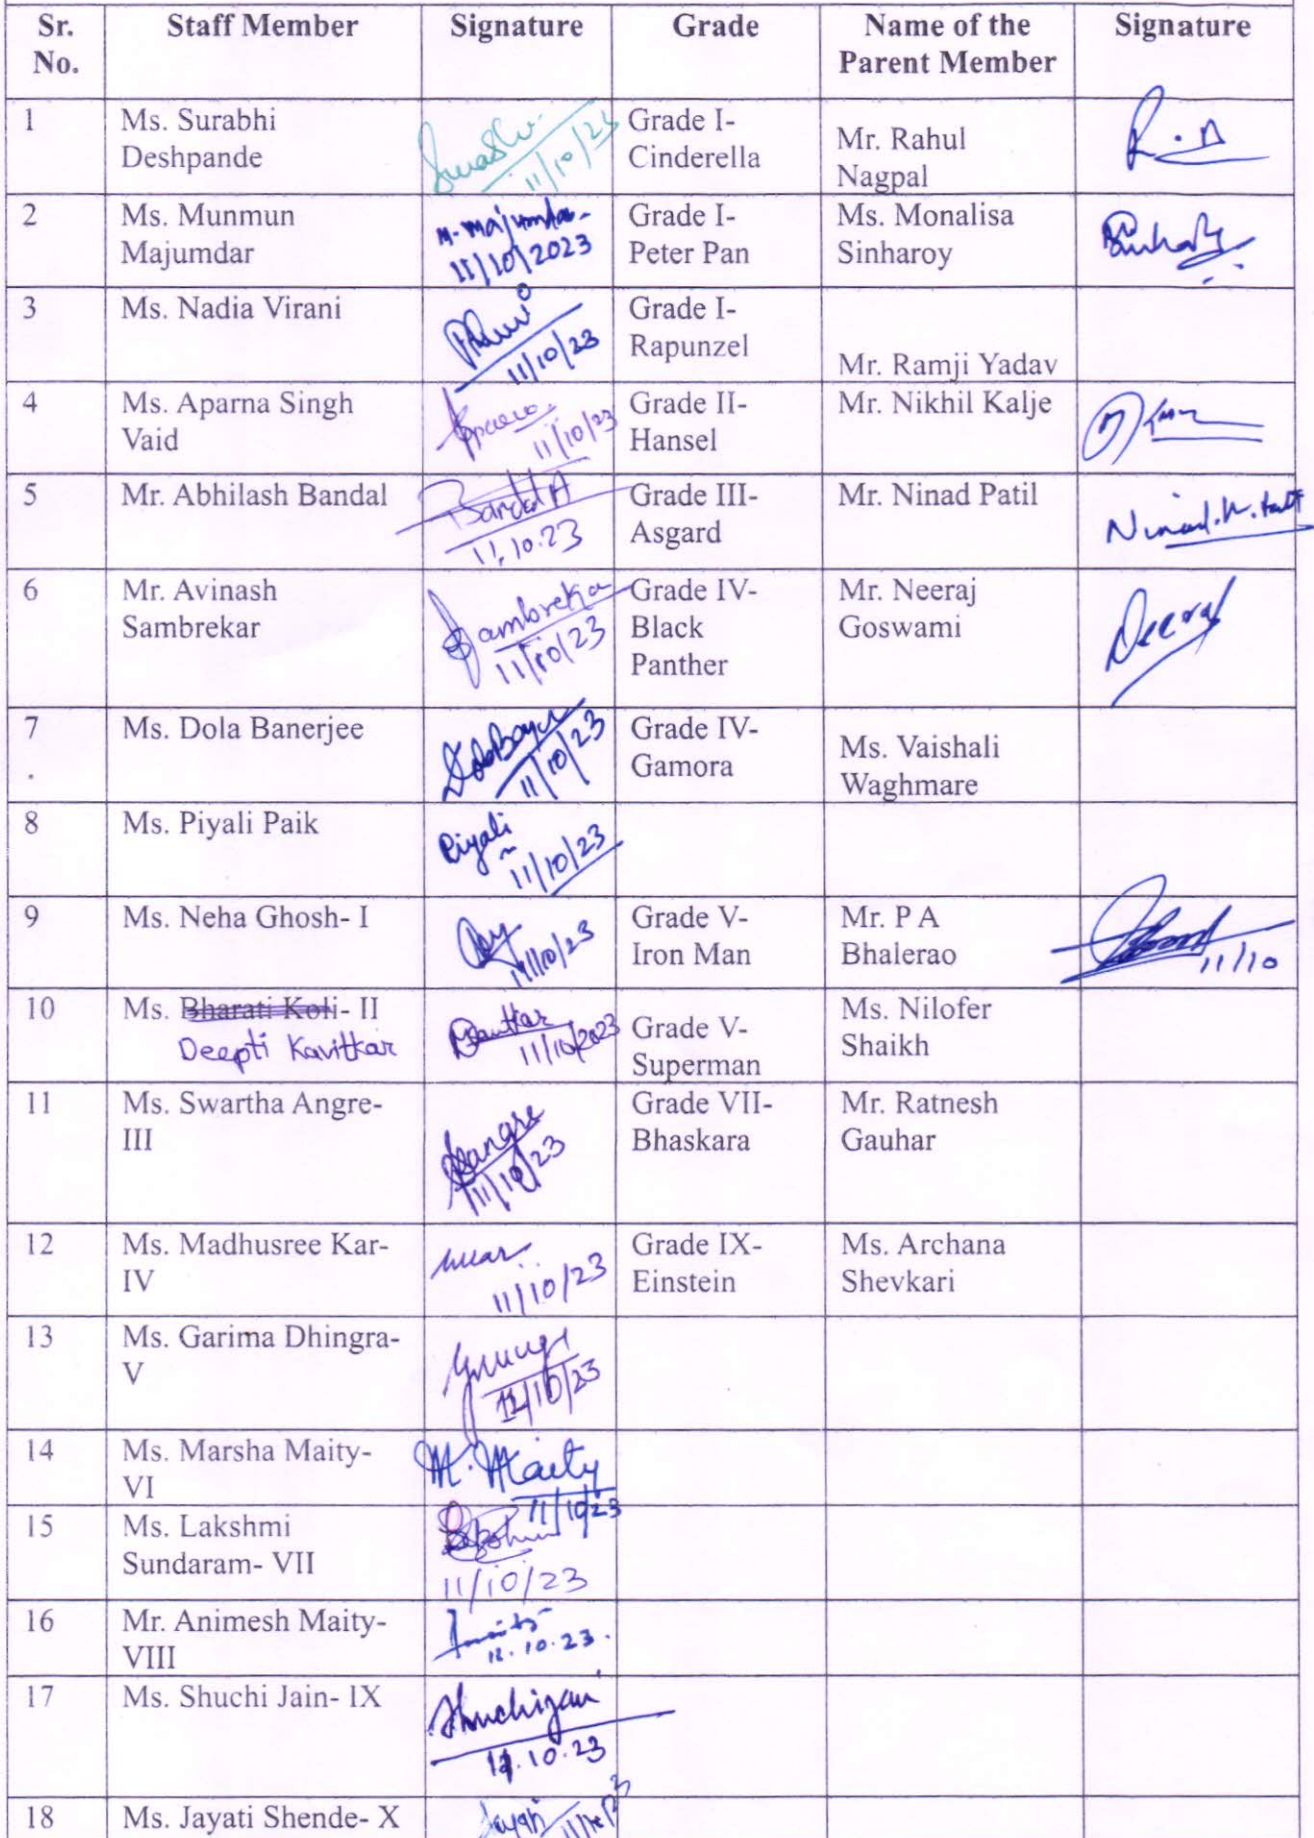 Sr. No. Staff Member Signature Grade Name of the Parent Member Signature
1 Ms. Surabhi Deshpande 11/10/23 Grade I- Cinderella Mr. Rahul Nagpal R.N
2 Ms. Munmun Majumdar M. Majumdar 11/10/2023 Grade I- Peter Pan Ms. Monalisa Sinharoy
3 Ms. Nadia Virani 11/10/23 Grade I- Rapunzel Mr. Ramji Yadav
4 Ms. Aparna Singh Vaid 11/10/23 Grade II- Hansel Mr. Nikhil Kalje
5 Mr. Abhilash Bandal Bandal A 11.10.23 Grade III- Asgard Mr. Ninad Patil
6 Mr. Avinash Sambrekar 11/10/23 Grade IV- Black Panther Mr. Neeraj Goswami Neeraj
7 Ms. Dola Banerjee 11/10/23 Grade IV- Gamora Ms. Vaishali Waghmare
8 Ms. Piyali Paik Piyali 11/10/23
9 Ms. Neha Ghosh- I 11/10/23 Grade V- Iron Man Mr. P A Bhalerao 11/10
10 Ms. Bharati Koli- II Deepti Kavitkar 11/10/2023 Grade V- Superman Ms. Nilofer Shaikh
11 Ms. Swartha Angre- III 11/10/23 Grade VII- Bhaskara Mr. Ratnesh Gauhar
12 Ms. Madhusree Kar- IV 11/10/23 Grade IX- Einstein Ms. Archana Shevkari
13 Ms. Garima Dhingra- V 11/10/23
14 Ms. Marsha Maity- VI M. Maity 11/10/23
15 Ms. Lakshmi Sundaram- VII 11/10/23
16 Mr. Animesh Maity- VIII 11.10.23.
17 Ms. Shuchi Jain- IX 11.10.23
18 Ms. Jayati Shende- X